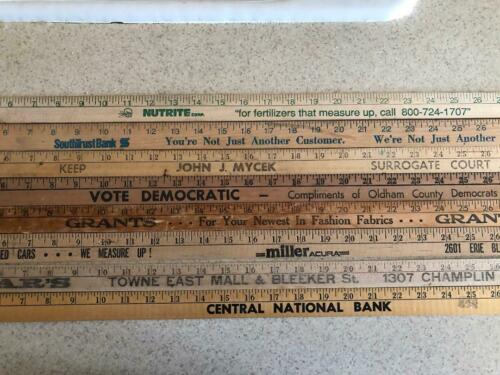 6 7 8 9 10 11 12 13 14 15 16 17 18 19 20 21 22 23 24 25 26
NUTRITE CORP. "for fertilizers that measure up, call 800-724-1707"
SouthTrust Bank You're Not Just Another Customer. We're Not Just Another
KEEP JOHN J. MYCEK SURROGATE COURT
VOTE DEMOCRATIC — Compliments of Oldham County Democrats
GRANTS . . . . For Your Newest In Fashion Fabrics . . . . GRAN
ED CARS . . . . WE MEASURE UP! miller ACURA 2601 ERIE B
AR'S TOWNE EAST MALL & BLEEKER St. 1307 CHAMPLIN
CENTRAL NATIONAL BANK